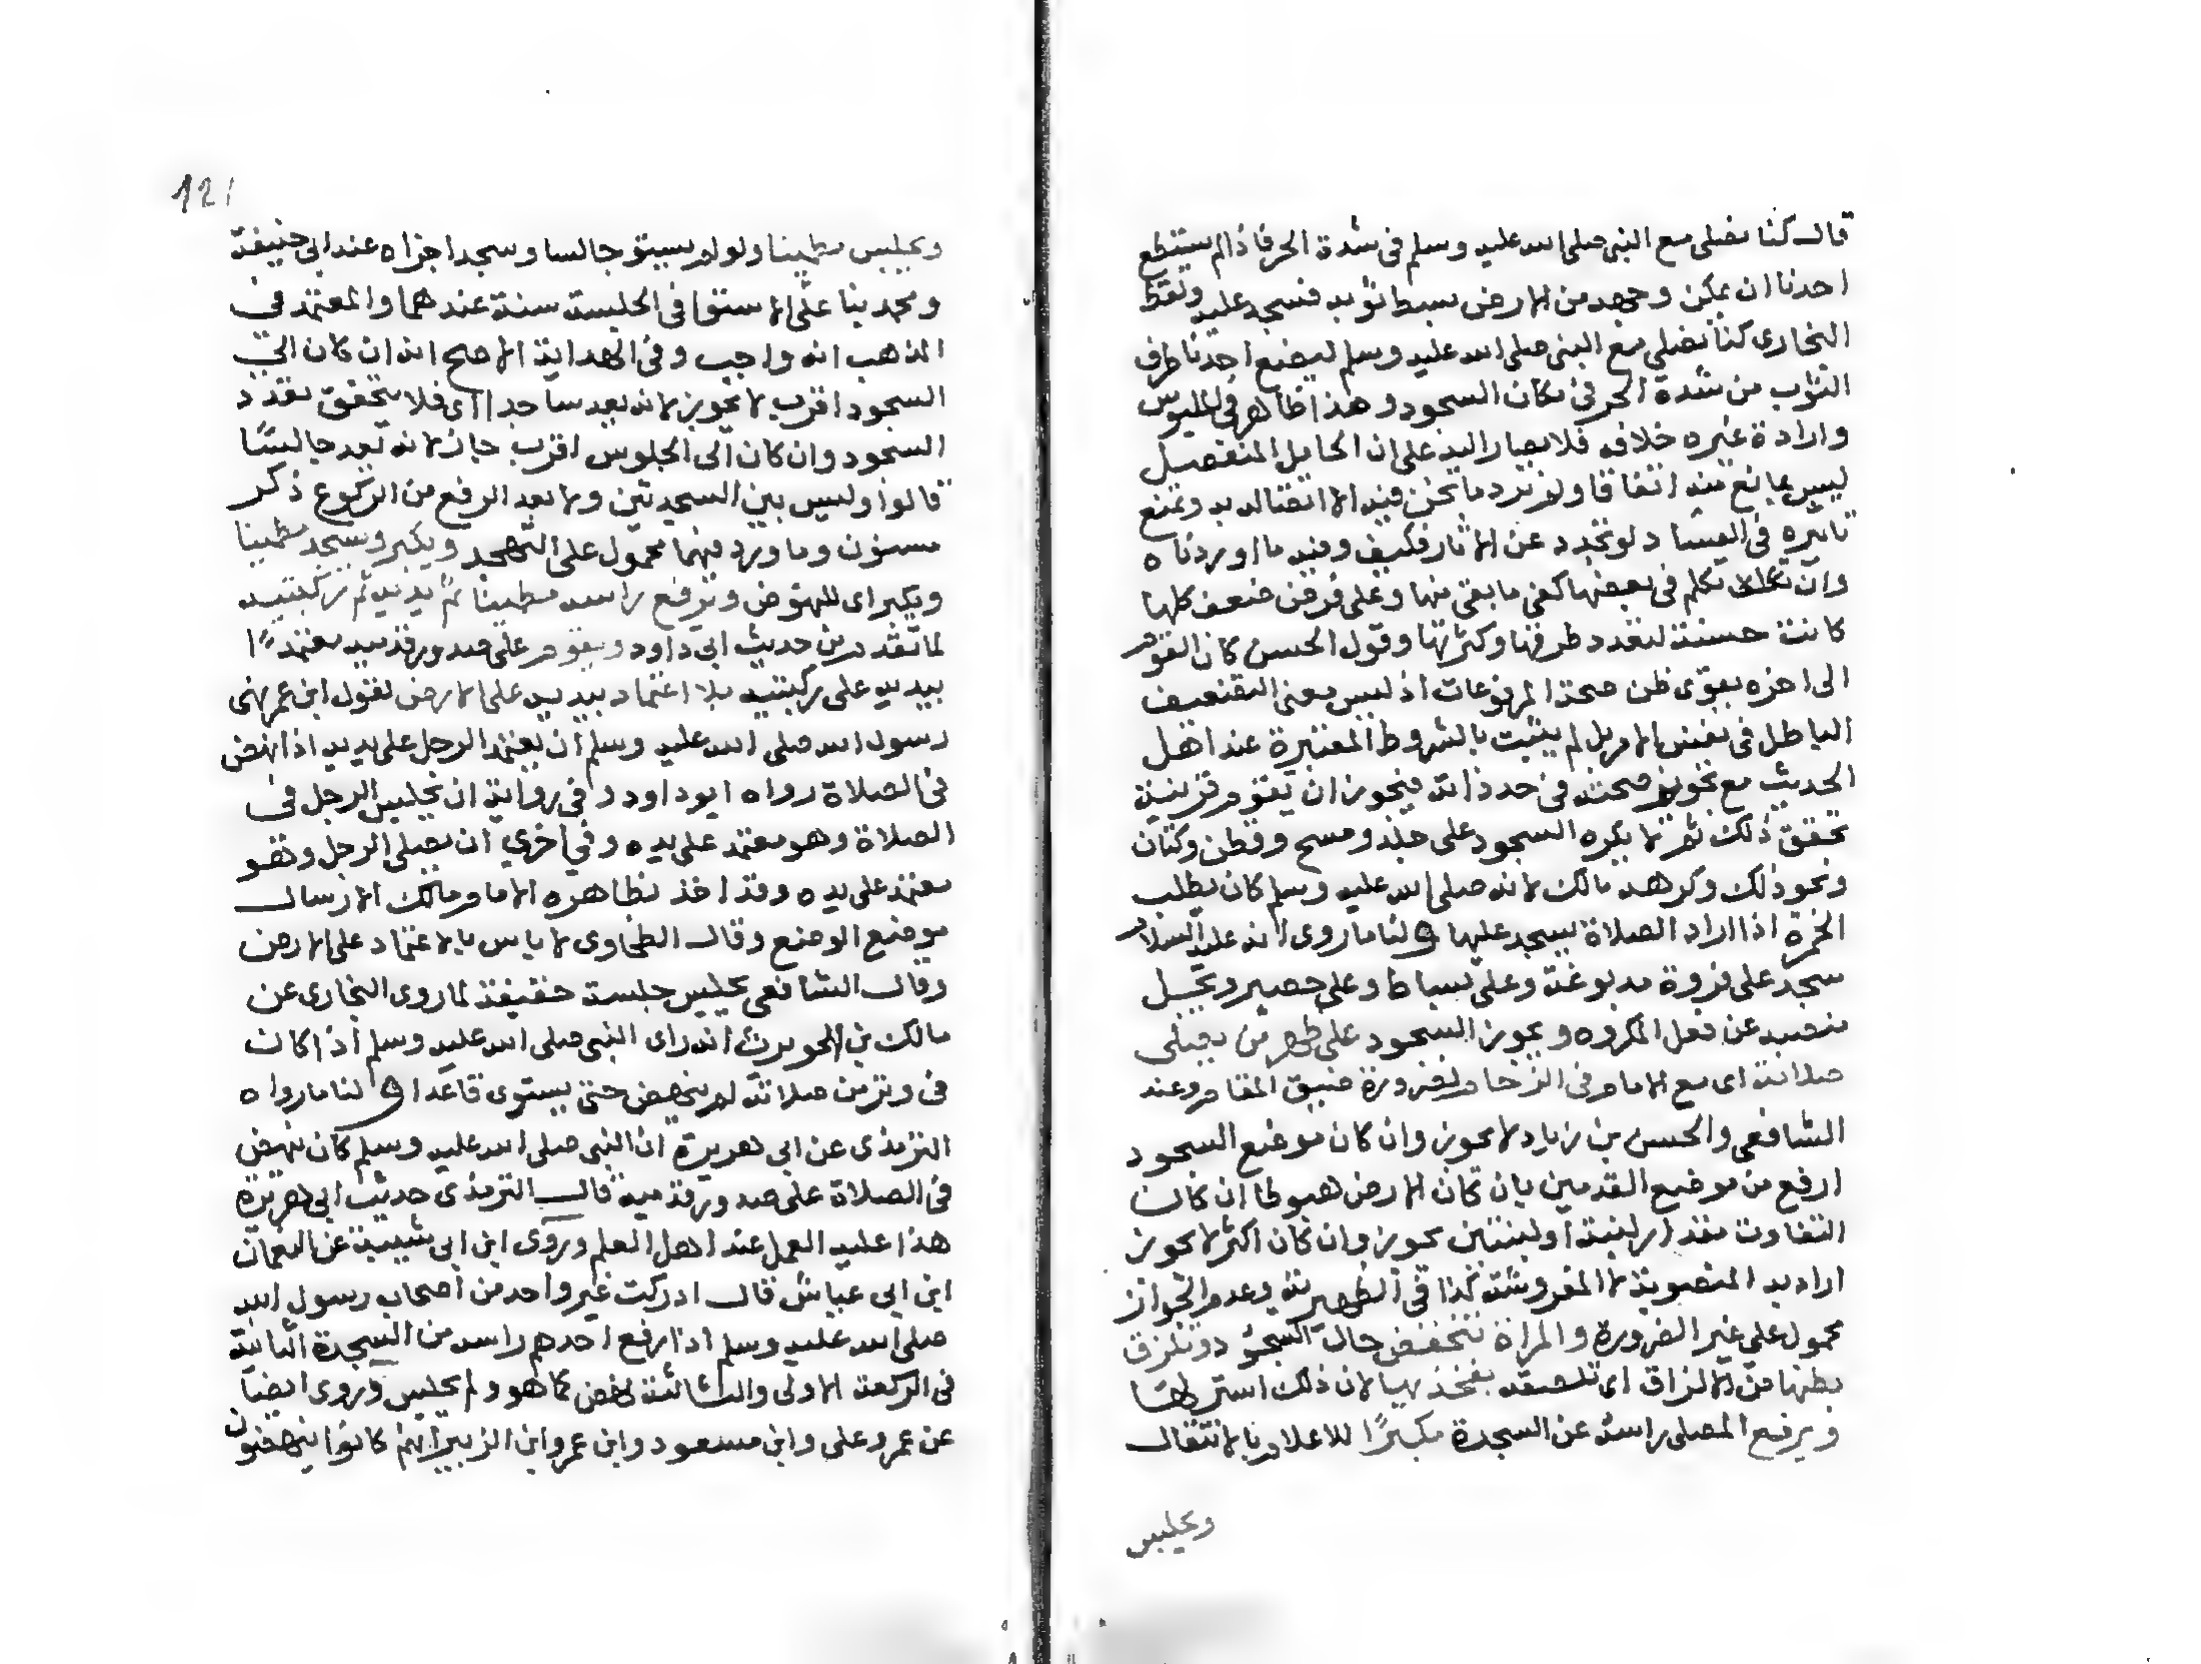 قال كنا نصلي مع النبي صلى الله عليه وسلم في شدة الحر فاذا لم يستطع
احدنا ان يمكن وجهه من الارض بسط ثوبه فسجد عليه ولفظ
البخاري كنا نصلي مع النبي صلى الله عليه وسلم ليضع احدنا طرف
الثوب من شدة الحر في مكان السجود وهذا ظاهر في الملبوس
وارادة غيره خلافه فلا يصار اليه على ان الحايل المنفصل
ليس بمانع منه اتفاقا ولم نزد ما نحن فيه الا اتصاله به ونمنع
تاثيره في الفساد لو تجرد عن الاثار فكيف وفيه ما اوردناه
وان تكلم في بعضها كفي ما بقي منها وعلى فرض ضعف كلها
كانت حسنة لتعدد طرقها وكثرتها وقول الحسن كان القوم
الى اخره يقوى ظن صحة المرفوعات اذ ليس معنى الضعيف
الباطل في نفس الامر بل لم يثبت بالشروط المعتبرة عند اهل
الحديث مع تجويز صحته في حد ذاته فيجوز ان يقوم قرينية
تحقق ذلك ثم لا يكره السجود على جلد ومسح وقطن وكتان
ونحو ذلك وكرهه مالك لانه صلى الله عليه وسلم كان يطلب
الخمرة اذا اراد الصلاة ليسجد عليها ولنا ما روى انه عليه السلام
سجد على فروة مدبوغة وعلى بساط وعلى حصير ويجل
منصبه عن فعل المكروه ويجوز السجود على ظهر من يصلى
صلاته اى مع الامام في الزحام لضرورة ضيق المقام وعند
الشافعي والحسن بن زياد لا يجوز وان كان موضع السجود
ارفع من موضع القدمين بان كان الارض هبوطا ان كان
التفاوت مقدار لبنة او لبنتين يجوز وان كان اكثر لا يجوز
اراد به المنصوبة لا المفروشة كذا في الظهيرية وعدم الجواز
محمول على غير الضرورة والمراة تنخفض حال السجود وتلزق
بطنها من الالزاق اى تلصقه بفخذيها لان ذلك استر لها
ويرفع المصلى راسه عن السجدة مكبرًا للاعلام بالانتقال
ويجلس
121
ويجلس مطمينا ولو لم يستو جالسا وسجد اجزاه عند ابى حنيفة
ومحمد بنا على الاستوا في الجلسة سنة عندهما والمعتمد في
المذهب انه واجب وفي الهداية الاصح انه ان كان الى
السجود اقرب لا يجوز لانه يعد ساجدا اى فلا يتحقق تعدد
السجود وان كان الى الجلوس اقرب جاز لانه يعد جالسًا
قالوا وليس بين السجدتين ولا بعد الرفع من الركوع ذكر
مسنون وما ورد فيهما محمول على التهجد ويكبر ويسجد مطمينا
ويكبر اى للنهوض ويرفع راسه مطمينا ثم يديه ثم ركبتيه
لما تقدم من حديث ابى داود ويقوم على صدور قدميه معتمدًا
بيديه على ركبتيه بلا اعتماد بيديه على الارض لقول ابن عمر نهى
رسول الله صلى الله عليه وسلم ان يعتمد الرجل على يديه اذا نهض
في الصلاة رواه ابو داود وفي رواية ان يجلس الرجل في
الصلاة وهو معتمد على يده وفي اخرى ان يصلى الرجل وهو
معتمد على يده وقد اخذ بظاهره الامام مالك الارسال
موضع الوضع وقال الطحاوى لا باس بالاعتماد على الارض
وقال الشافعي يجلس جلسة خفيفة لما روى البخارى عن
مالك بن الحويرث انه راى النبي صلى الله عليه وسلم اذا كان
في وتر من صلاته لم ينهض حتى يستوى قاعدا ولنا ما رواه
الترمذى عن ابى هريرة ان النبي صلى الله عليه وسلم كان ينهض
في الصلاة على صدور قدميه قال الترمذى حديث ابى هريرة
هذا عليه العمل عند اهل العلم وروى ابن ابى شيبة عن النعمان
ابن ابى عياش قال ادركت غير واحد من اصحاب رسول الله
صلى الله عليه وسلم اذا رفع احدهم راسه من السجدة الثانية
في الركعة الاولى والثالثة نهض كما هو ولم يجلس وروى ايضا
عن عمر وعلى وابن مسعود وابن عمر وابن الزبير انهم كانوا ينهضون